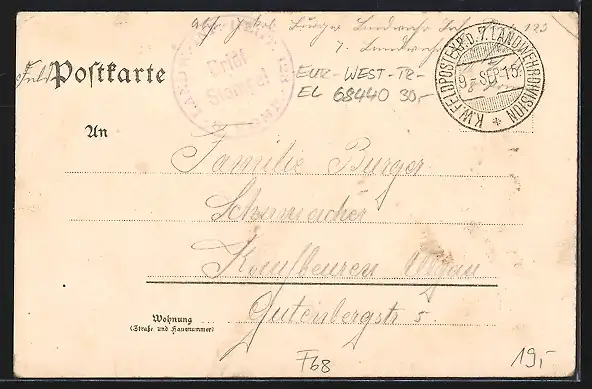 Abs. Jakob Burger Landwehr Inf. Regt 123
7. Landwehr
Feld Postkarte
Brief
Stempel
K.W. FELDPOSTEXP. D. 7. LANDWEHRDIVISION
9. SEP. 15.
EUR-WEST-TR-
EL 68440 30,-
An
Familie Burger
Schumacher
Kaufbeuren Allgäu
Wohnung
(Straße und Hausnummer)
Gutenbergstr 5.
F68
19,-